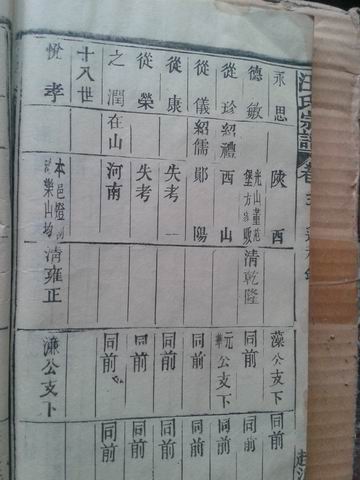 汪氏宗譜 卷
永思 陝西 藻公支下 同前
德敏 光山 堡方 清乾隆 同前 同前
從珍 紹禮 西山 元 公支下 同前
從儀 紹儒 鄖陽 同前 同前
從康 失考 同前 同前
從榮 失考 同前 同前
之潤 在山 河南 同前 同前
十八世
悅孝 本邑 清雍正 濂公支下